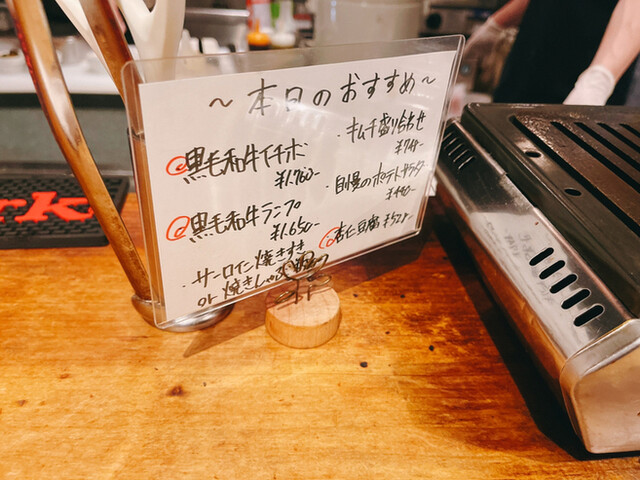 ～本日のおすすめ～
黒毛和牛イチボ
¥1.760-
黒毛和牛ランプ
¥1.650-
・サーロイン焼きすき
or 焼きしゃぶ
・キムチ盛り合わせ
¥748-
・自慢のポテトサラダ
¥440-
杏仁豆腐 ¥528-
rk